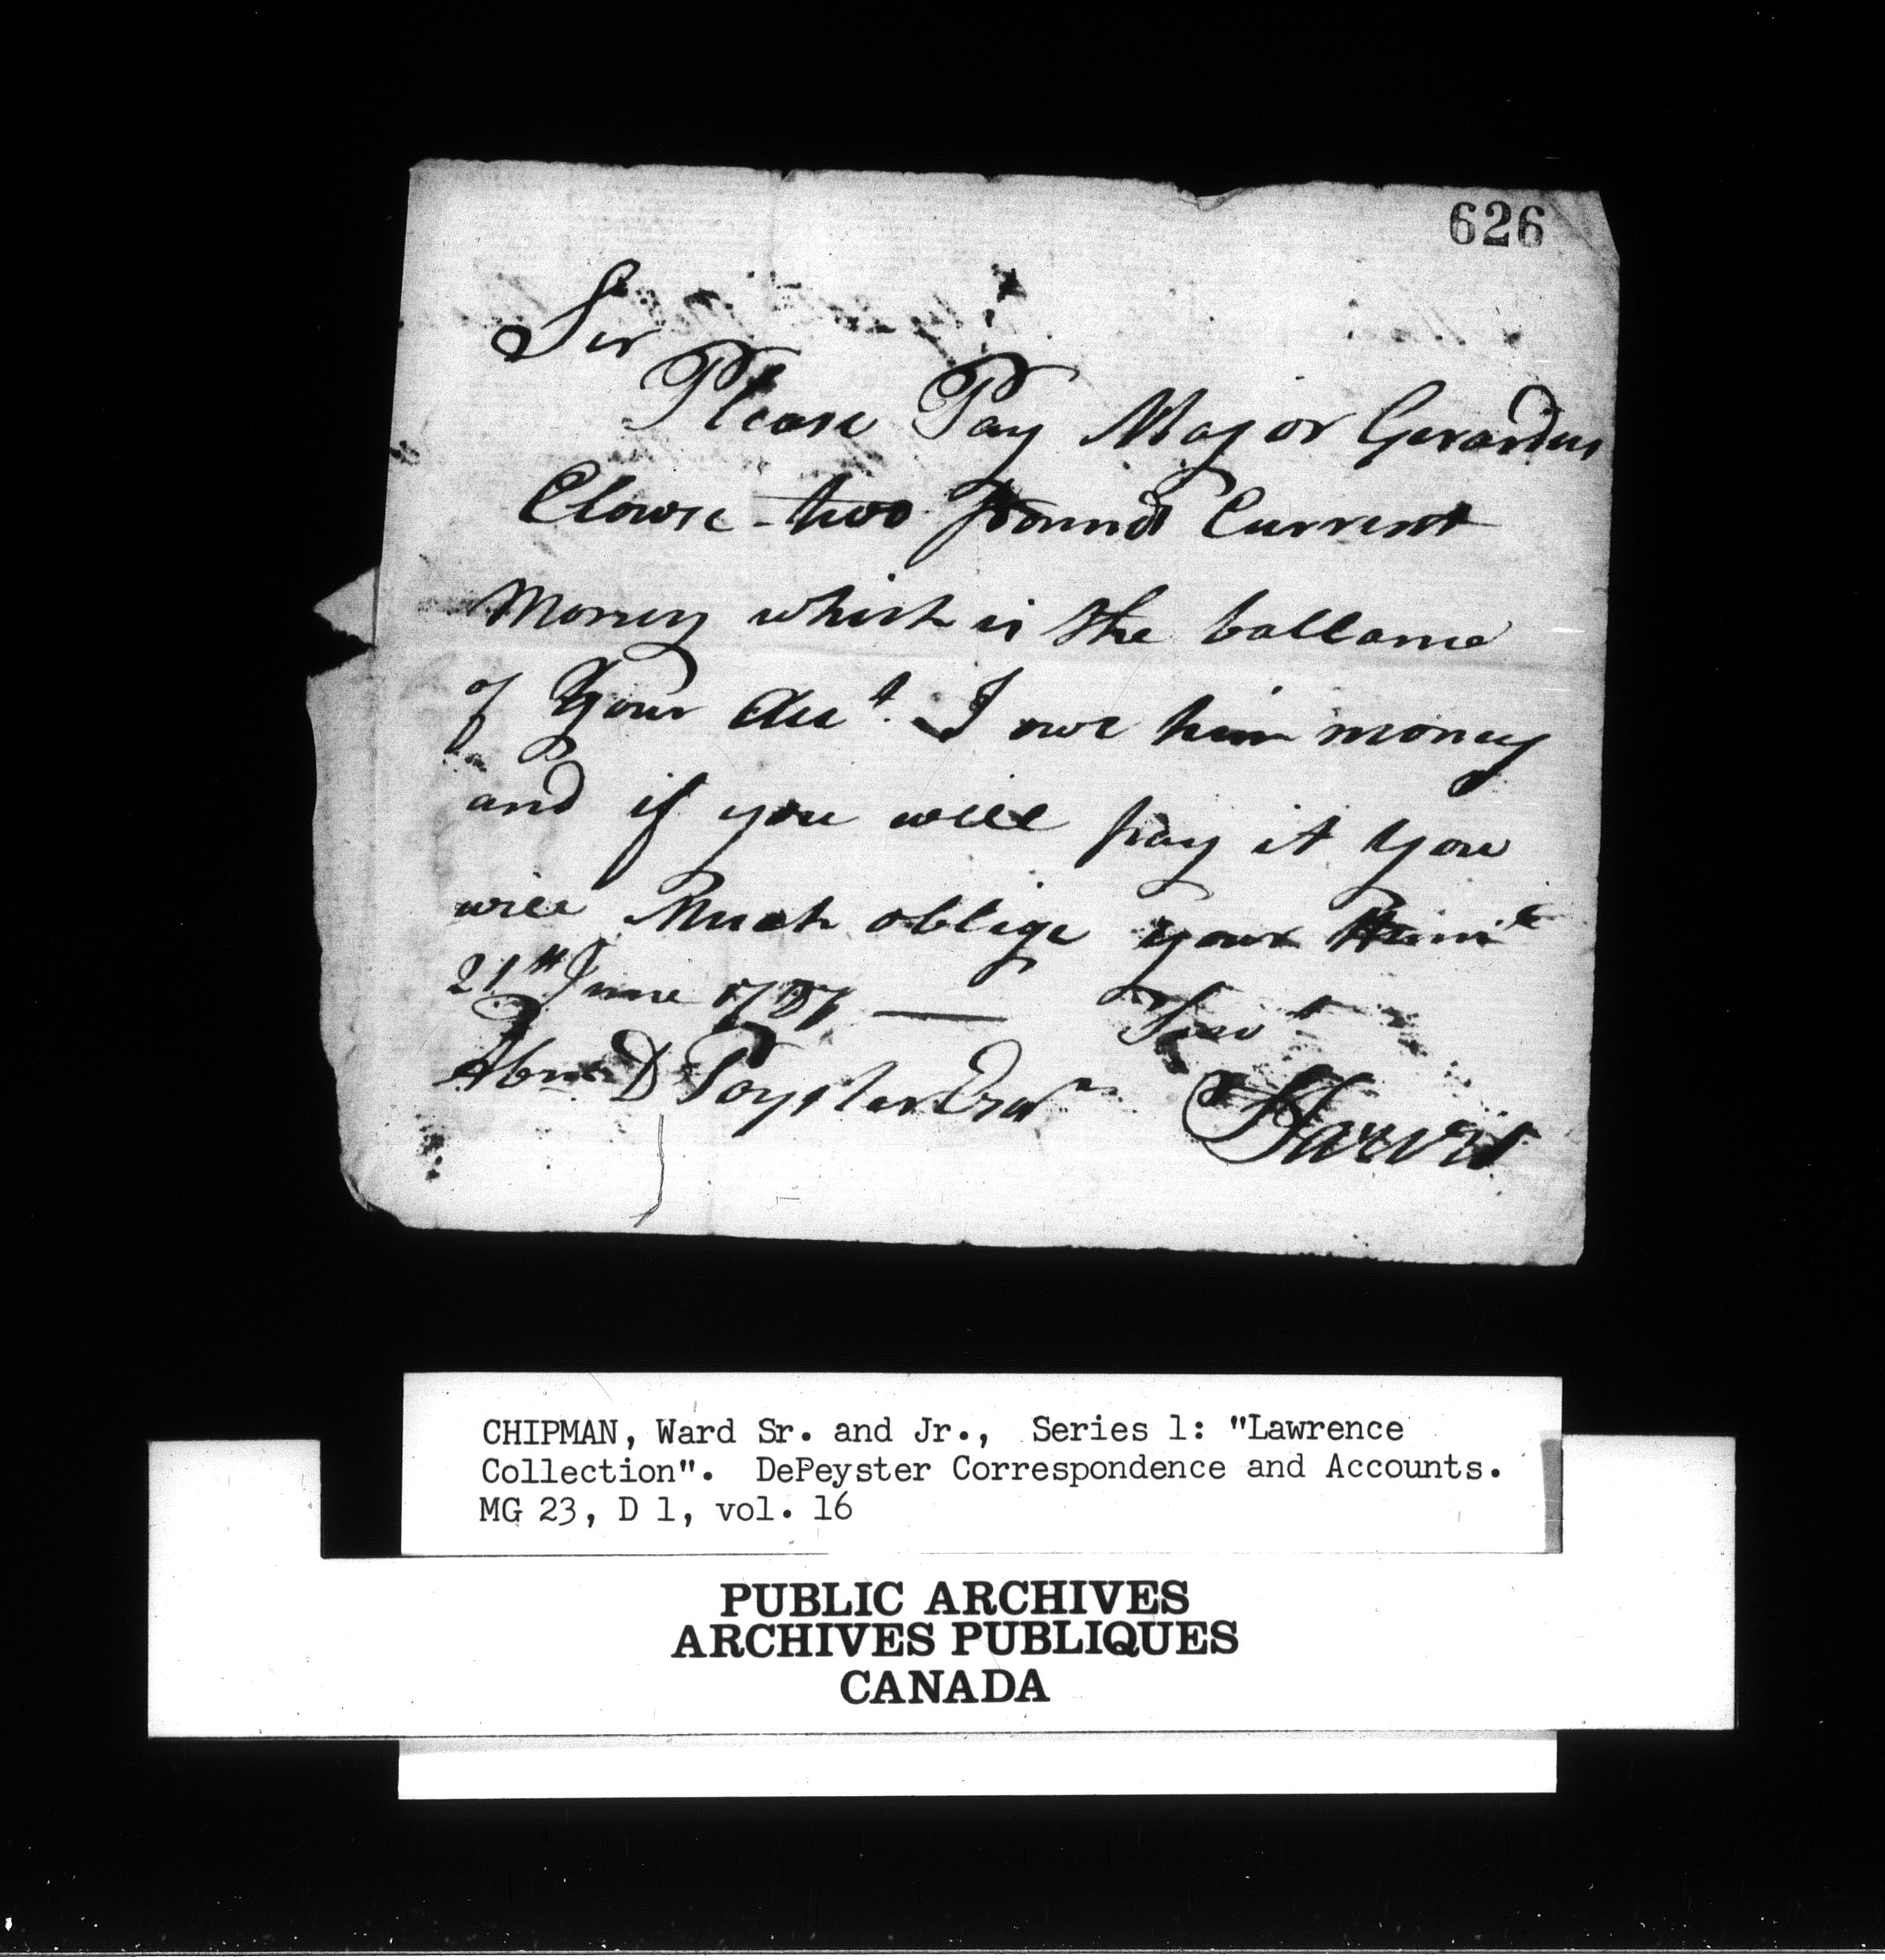 626
Sir
Please Pay Major Gerardus
Clowse two pound Current
Money which is the ballance
of Your Acct. I owe him money
and if you will pay it you
will Much oblige your Humle
21st June 1787 — Servt
Abm. D Poyster Esqr
CHIPMAN, Ward Sr. and Jr., Series 1: "Lawrence
Collection". DePeyster Correspondence and Accounts.
MG 23, D 1, vol. 16
PUBLIC ARCHIVES
ARCHIVES PUBLIQUES
CANADA